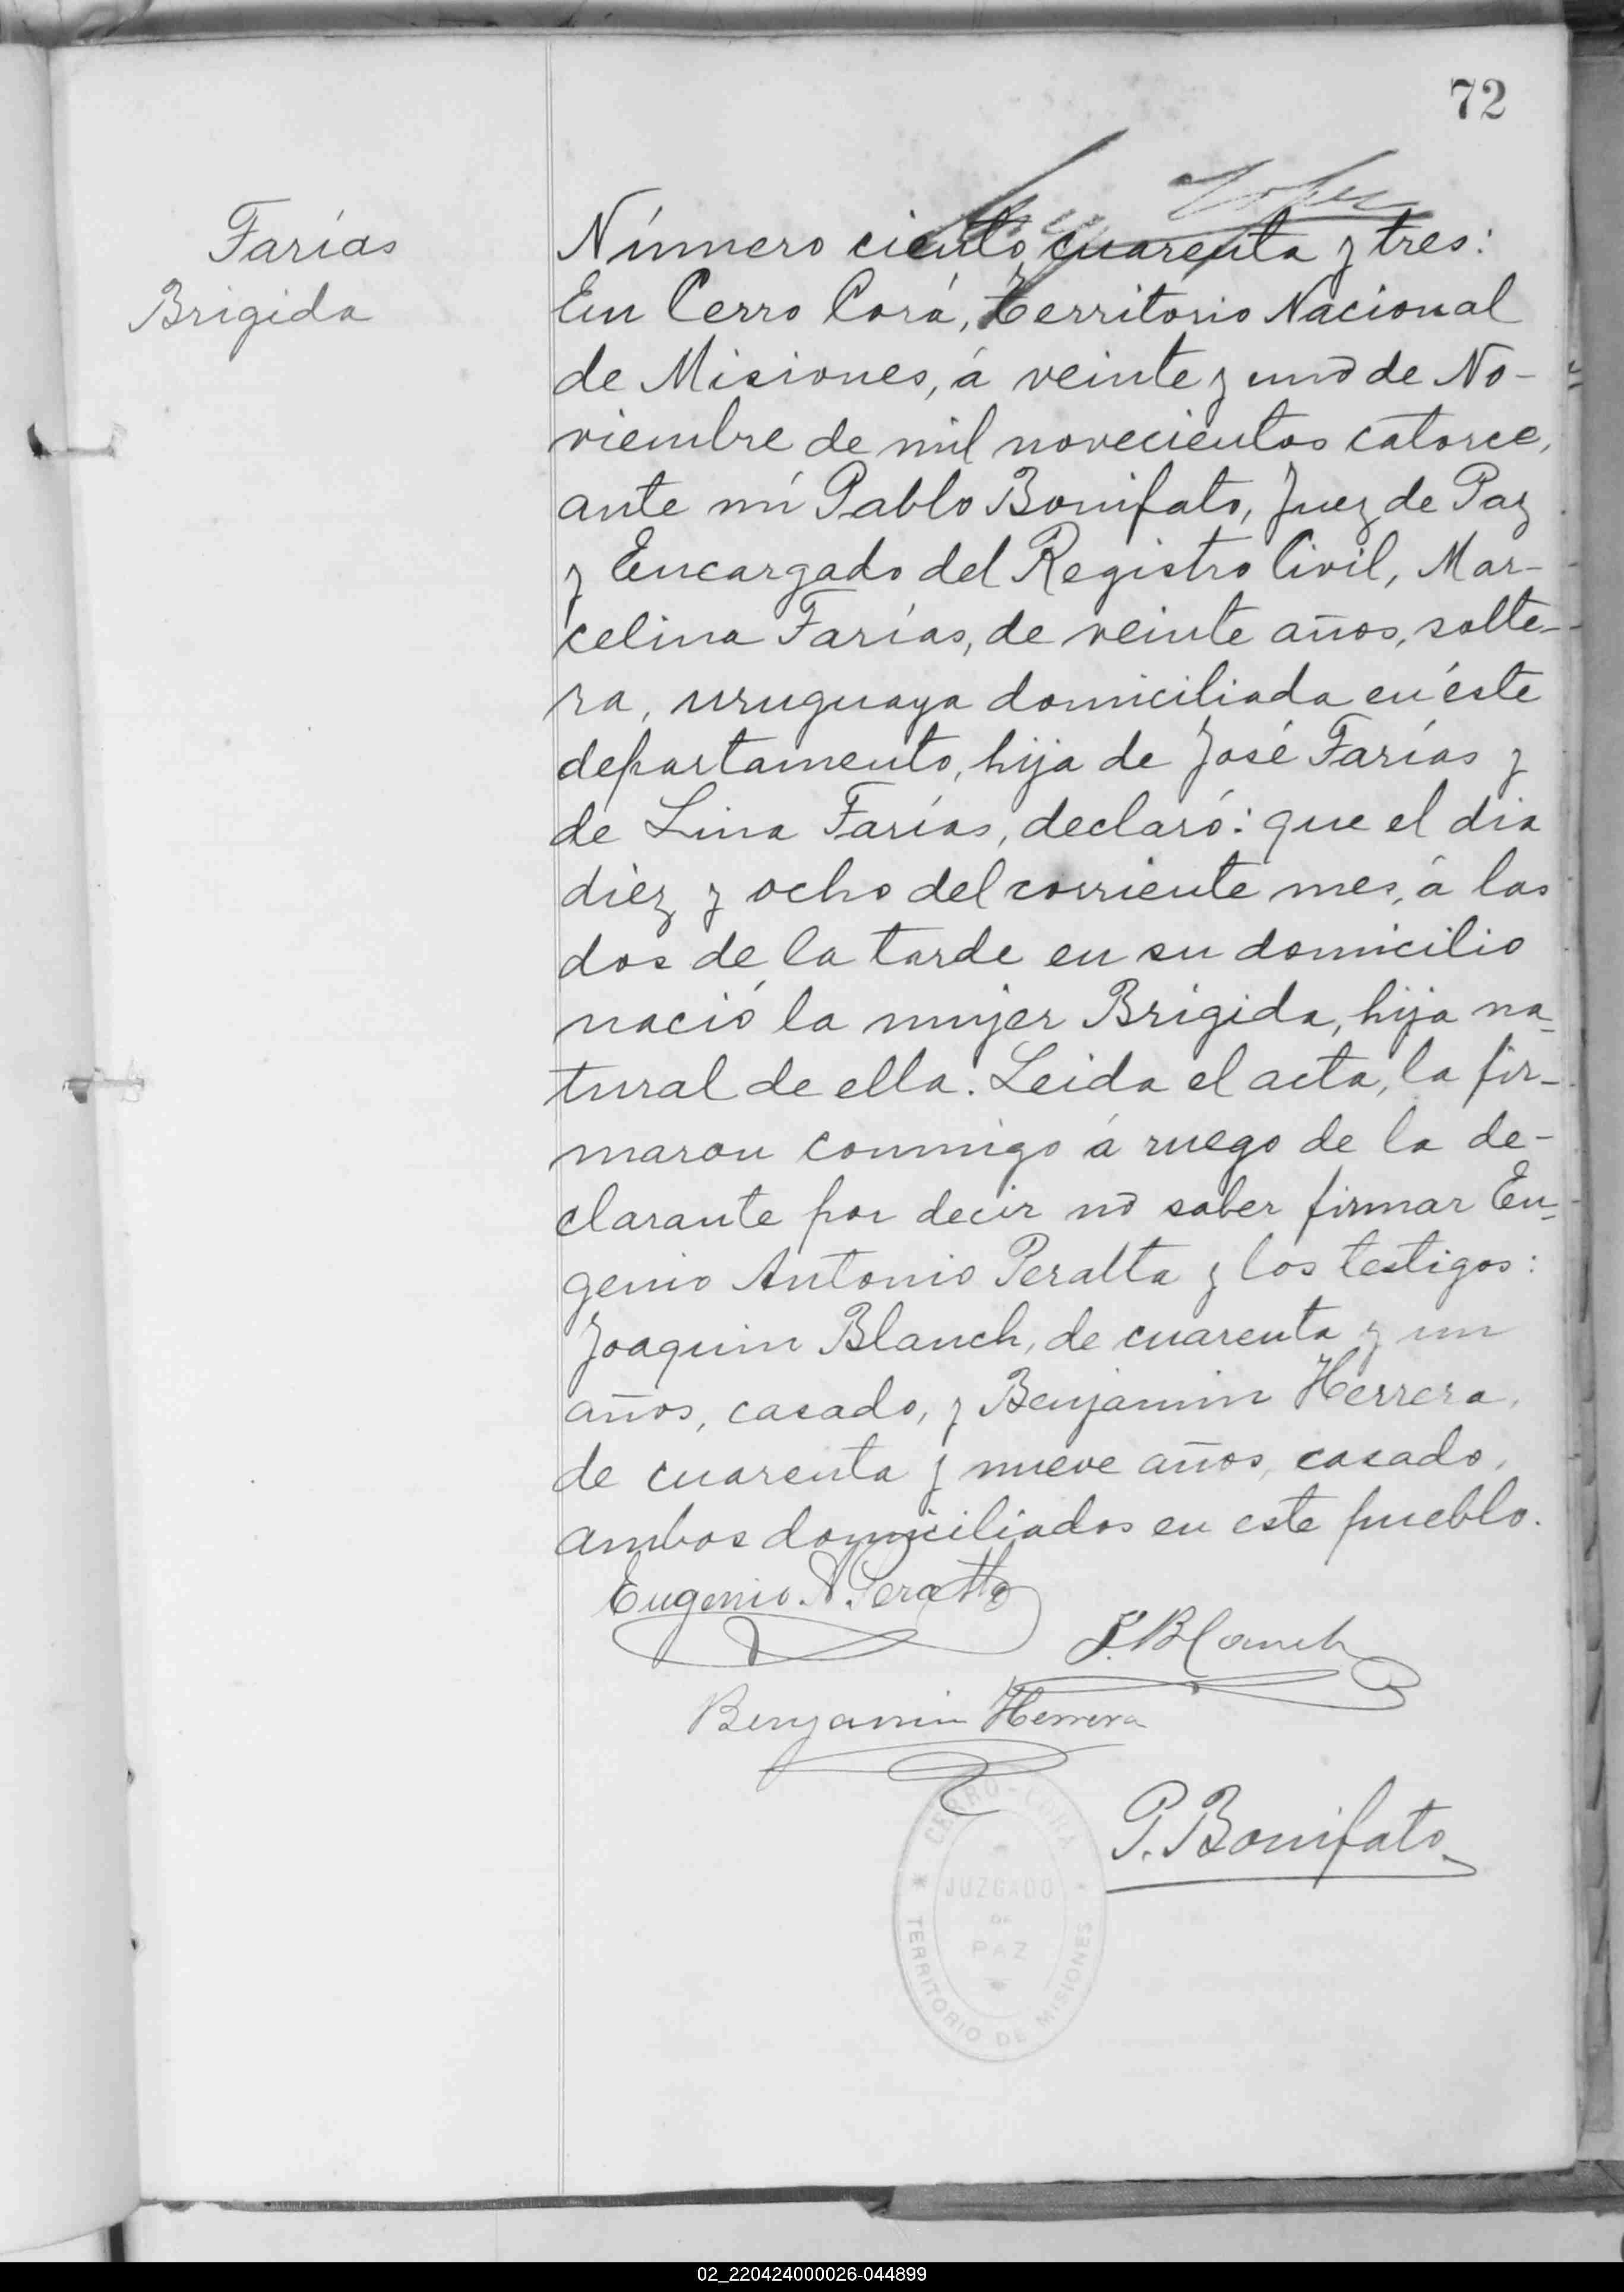 72
Farías
Brigida
Número ciento cuarenta y tres:
En Cerro Corá, territorio Nacional
de Misiones, á veinte y uno de No-
viembre de mil novecientos catorce,
ante mí Pablo Bonifato, Juez de Paz
y Encargado del Registro Civil, Mar-
celina Farías, de veinte años, solte-
ra, uruguaya domiciliada en éste
departamento, hija de José Farías y
de Lina Farías, declaró: que el dia
diez y ocho del corriente mes, á las
dos de la tarde en su domicilio
nació la mujer Brigida, hija na-
tural de ella. Leida el acta, la fir-
maron conmigo á ruego de la de-
clarante por decir no saber firmar Eu-
genio Antonio Peralta y los testigos:
Joaquin Blanch, de cuarenta y un
años, casado, y Benjamin Herrera,
de cuarenta y nueve años, casado,
ambos domiciliados en este pueblo.
Eugenio A. Peralta
J. Blanch
Benjamin Herrera
P. Bonifato
CERRO-CORA
JUZGADO
DE
PAZ
TERRITORIO DE MISIONES
02_220424000026-044899